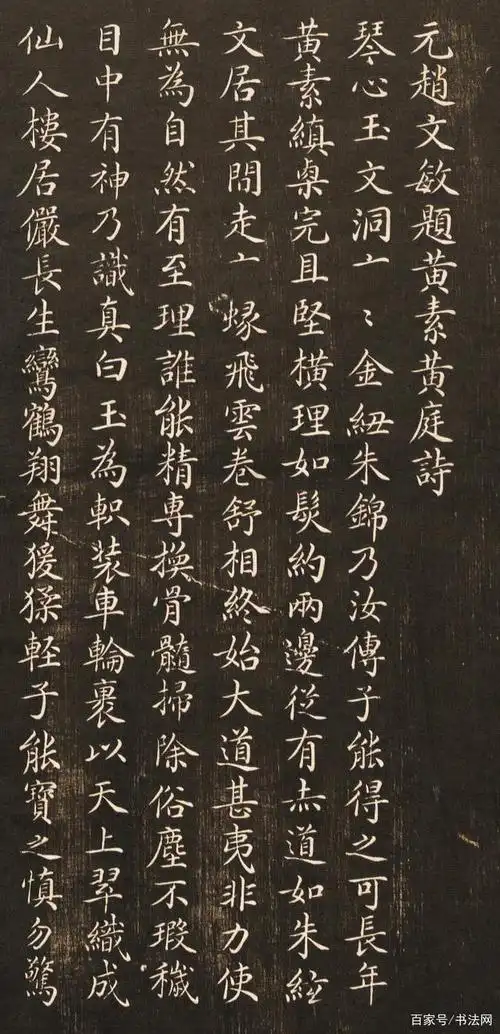 元趙文敏題黃素黃庭詩
琴心玉文洞亠〻金紐朱錦乃汝傳子能得之可長年
黃素縝栗完且堅橫理如髮約兩邊從有赤道如朱絃
文居其間走亠蝝飛雲卷舒相終始大道甚夷非力使
無為自然有至理誰能精專換骨髓掃除俗塵不瑕穢
目中有神乃識真白玉為軹装車輪裹以天上翠織成
仙人樓居儼長生鸞鶴翔舞猨猱輕子能寶之慎勿驚
百家号/书法网